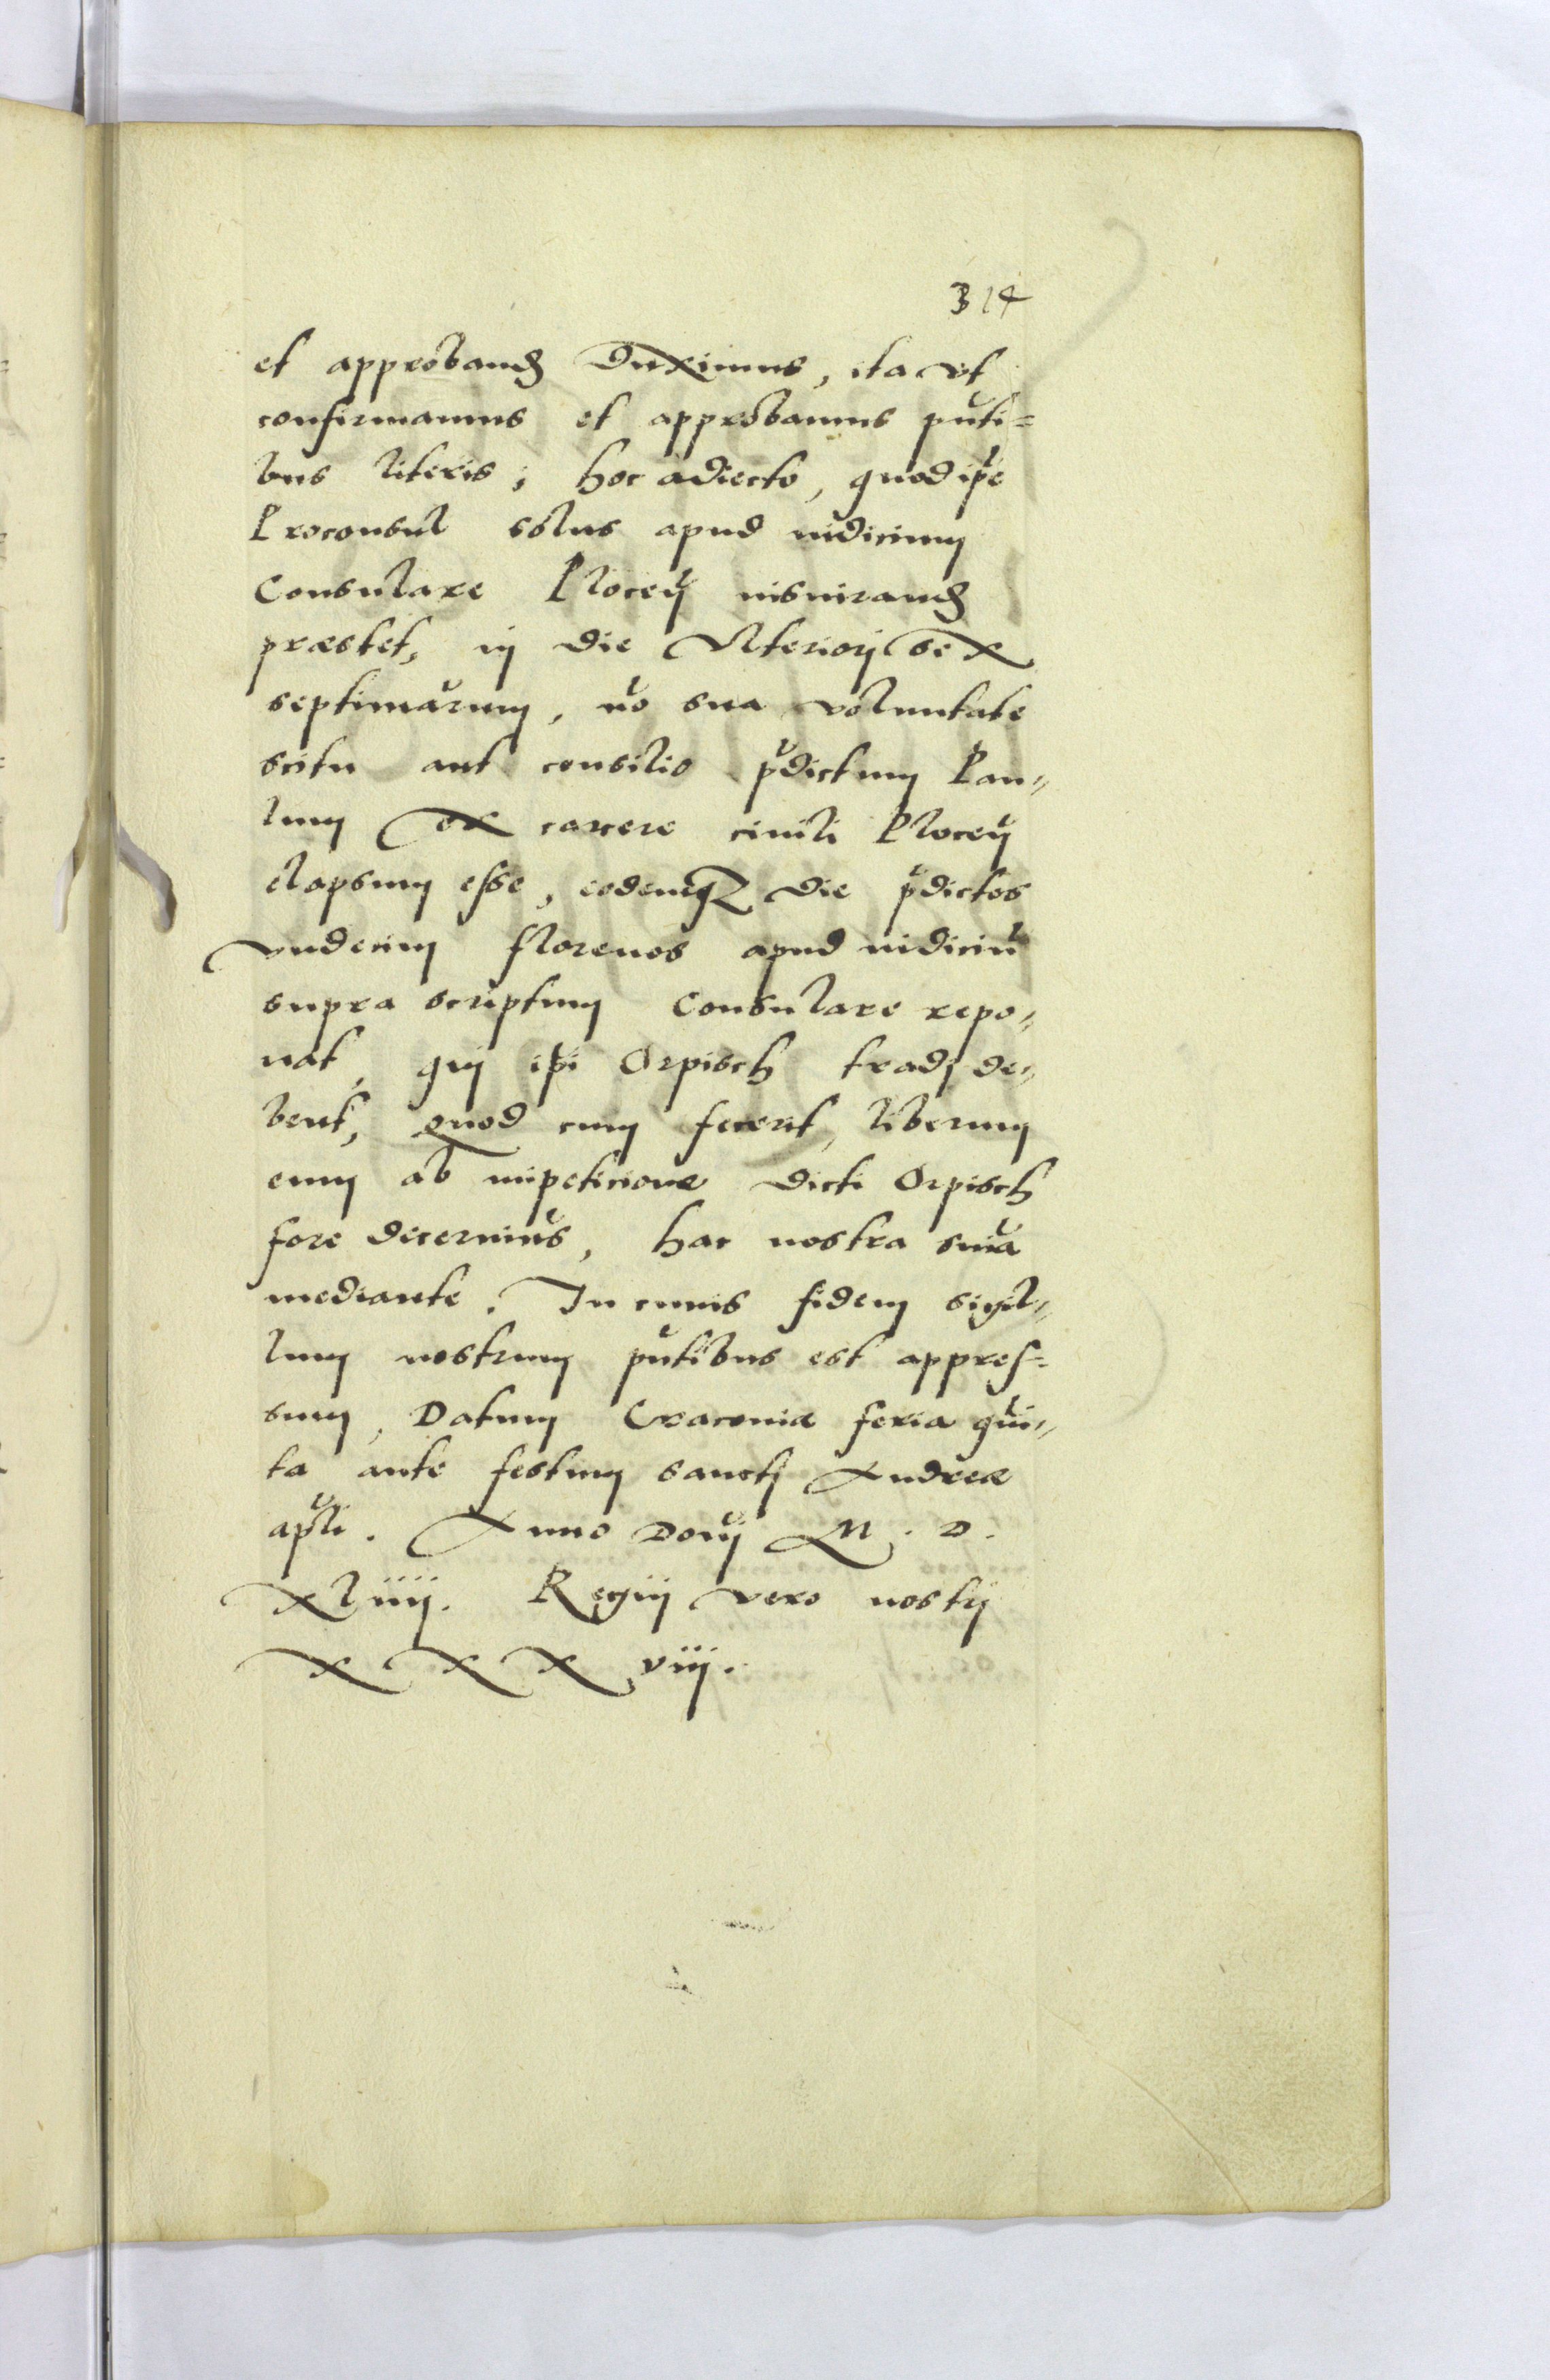 314
et approband duximus, ita vt
confirmamus et approbamus pnti=
bus literis; hoc adiecto, quod ipe
Proconsul solus apud iudicium
Consulare Plocen iusiurand
praestet, in die Vlteriori sex
septimarum, no sua voluntate
scitu aut consilio pdictum Pau„
lum ex carcere ciuili Plocen
elapsum esse, eodemq die pdictos
vndecim florenos apud iudiciu
supra scriptum Consulare repo„
nat, qui ipi Orpisch tradi de„
bent, quod cum fecerit, liberum
eum ab impeticione dicti Orpisch
fore decernims, hac nostra snia
mediante. In cuius fidem sigil„
lum nostrum pntibus est appres=
sum, Datum Cracouiæ feria qui„
ta ante festum sancti Andreæ
apli. Anno Doni M. D.
xliiij. Regni vero nostri
x x x viij.